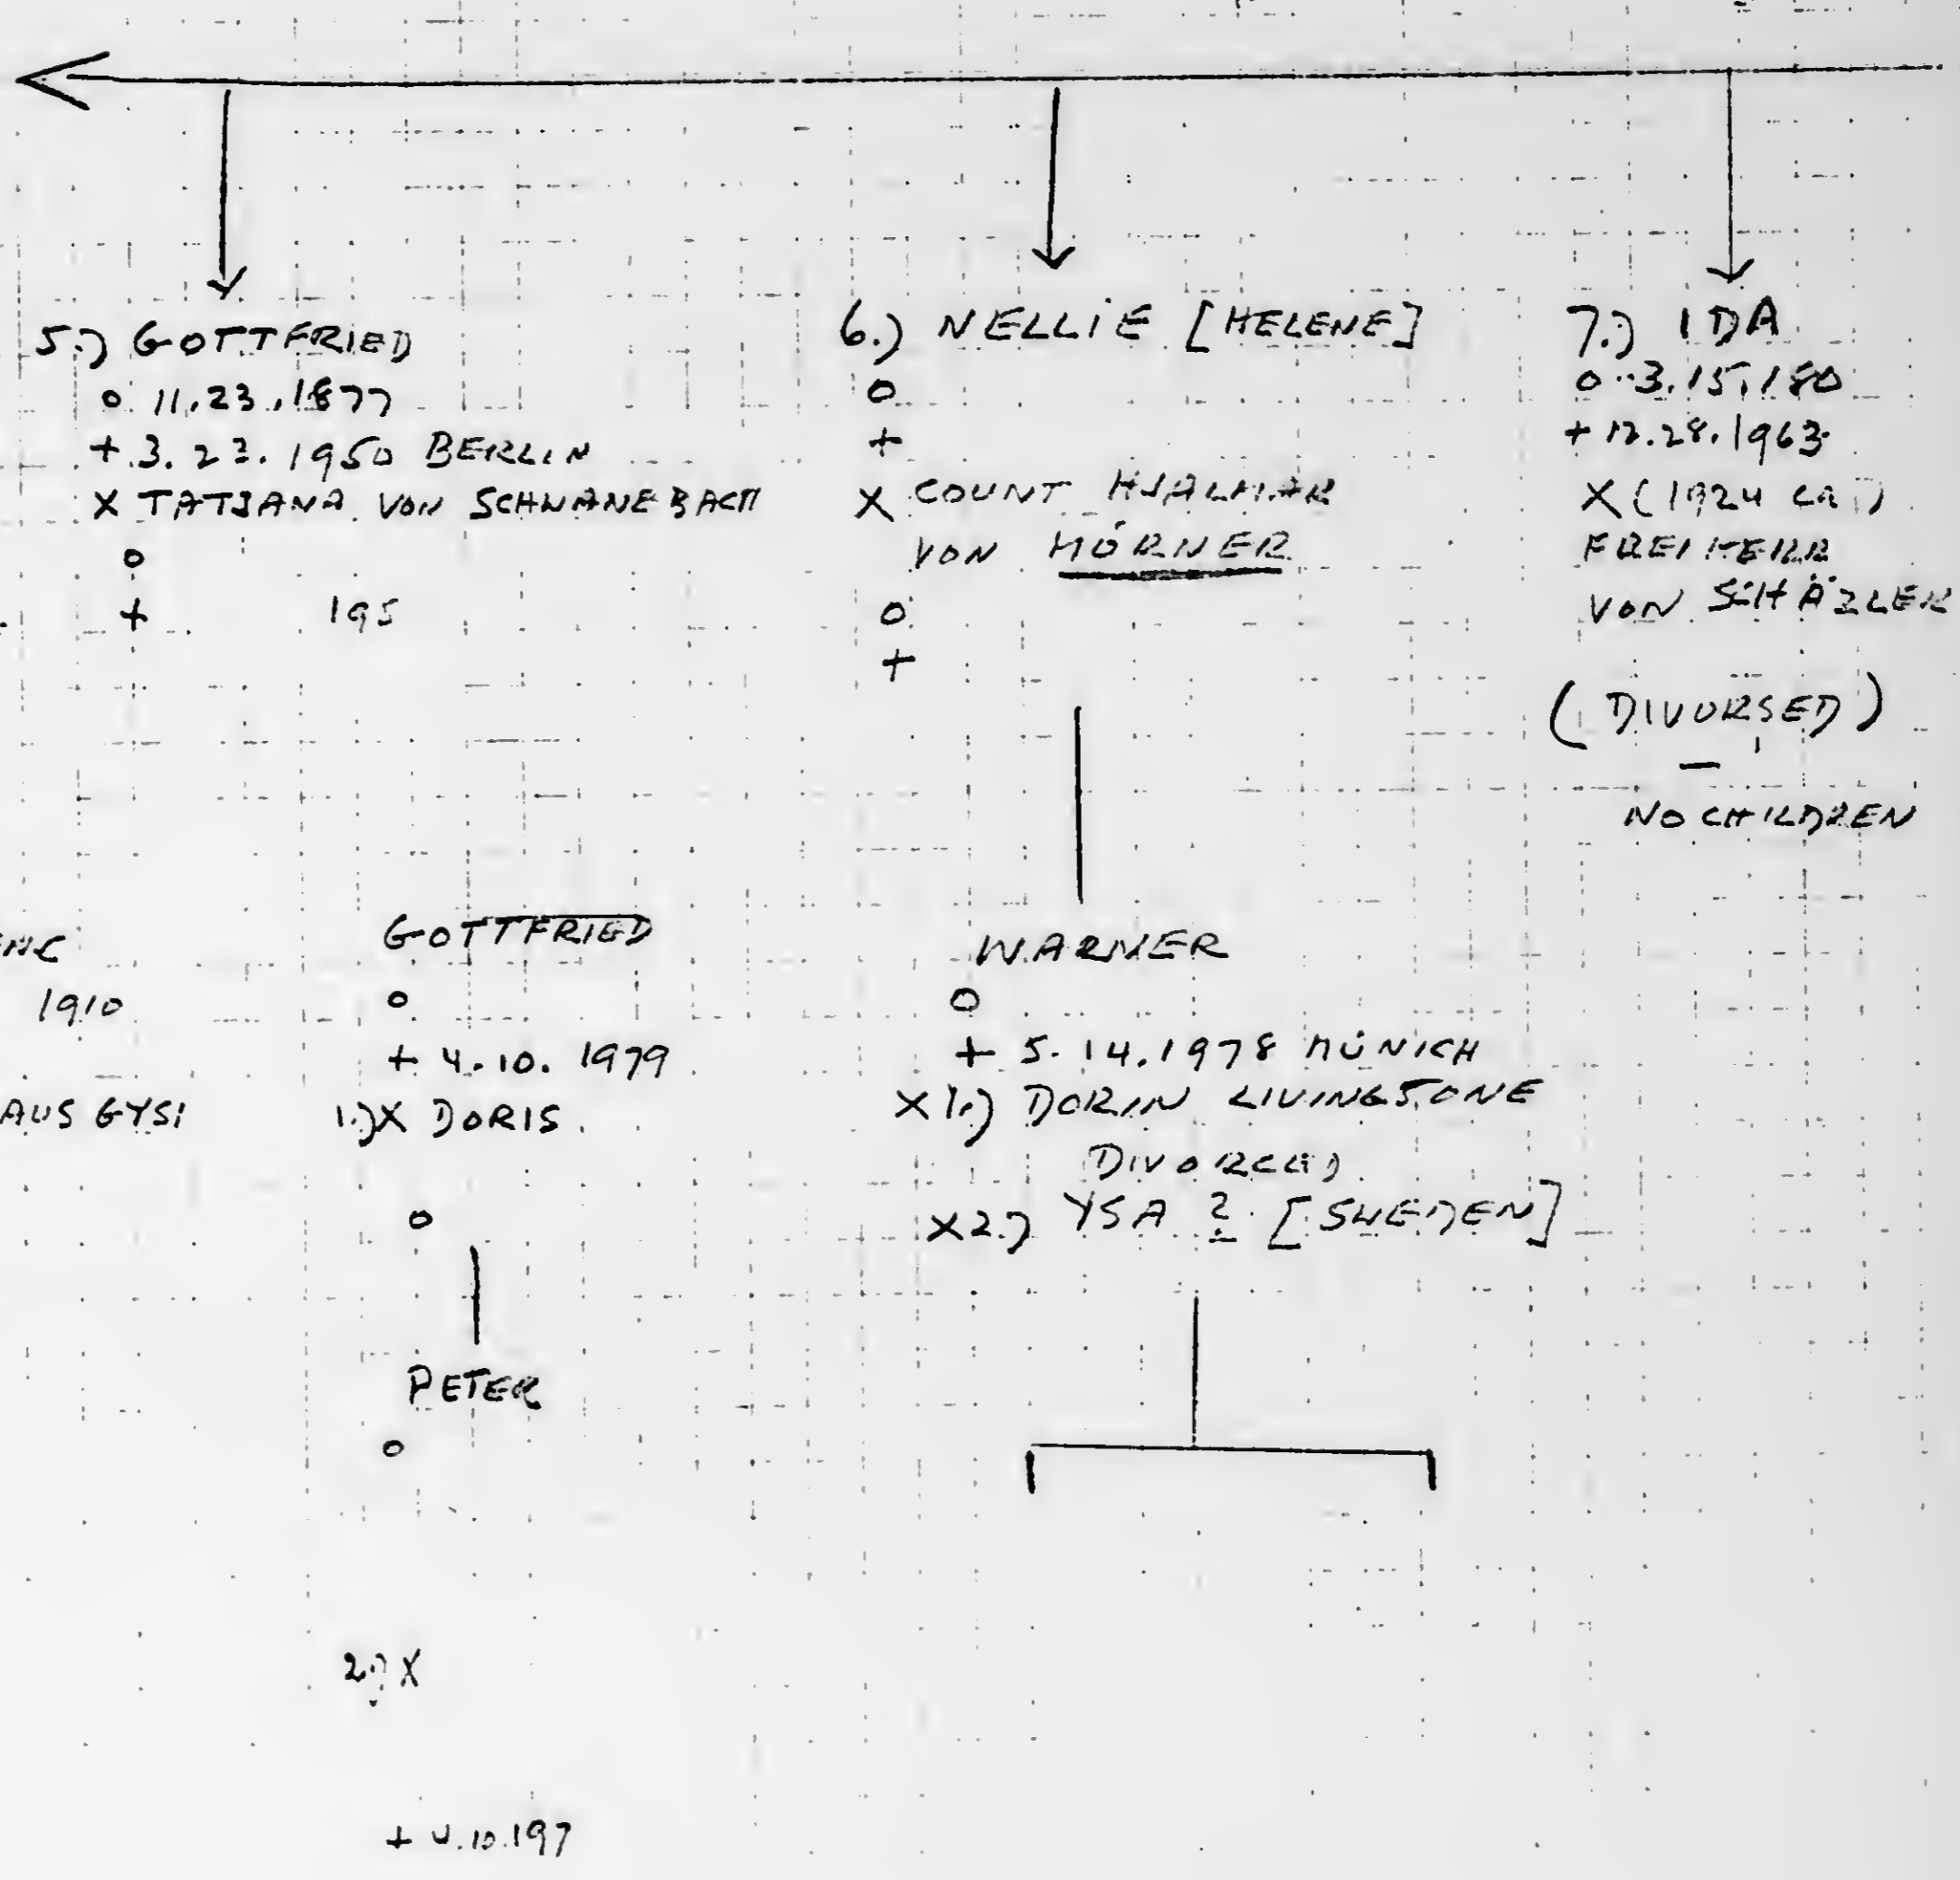 5.) GOTTFRIED
o 11.23.1877
+ 3.23.1950 BERLIN
X TATJANA VON SCHWANEBACH
o
+ 195
6.) NELLIE [HELENE]
o
+
X COUNT HJALMAR
VON MÖRNER
o
+
7.) IDA
o 3.15.180
+ 12.28.1963
X (1924 ca )
FREIHERR
VON SCHÄZLER
(DIVORSED)
—
NO CHILDREN
1910
AUS GYSI
GOTTFRIED
o
+ 4.10.1979
1.) X DORIS
o
PETER
o
2.) X
+ 4.10.197
WARNER
o
+ 5.14.1978 MÜNICH
X 1.) DORIN LIVINGSTONE
DIVORCED
X 2.) YSA ? [SWEDEN]